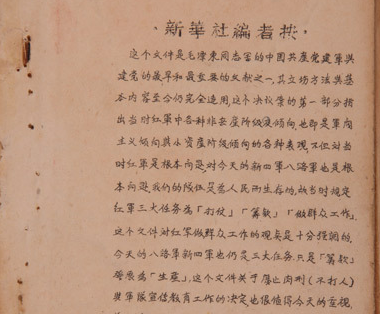 新華社編者按，
这个文件是毛澤东同志写的中国共產党建軍與
建党的最早和最重要的文献之一，其立場方法與基
本内容至今仍完全適用，这个决议案的第一部分指
出当时红軍中各种非無產階級傾向，也即是軍向
主义傾向與小資產階級傾向的各种表現，不但对当
时红軍是根本问题，对今天的新四軍八路軍也是根
本问题，我们的隊伍是为人民而生存的，故当时規定
红軍三大任务為「打仗」「籌欵」「做群众工作」，
这个文件对红軍做群众工作的現矣是十分强調的，
今天的八路軍新四軍也仍是三大任务，只是「籌欵」
發展為「生產」，这个文件关于廢止肉刑（不打人）
與軍隊宣传教育工作的决定，也很值得今天的重視，